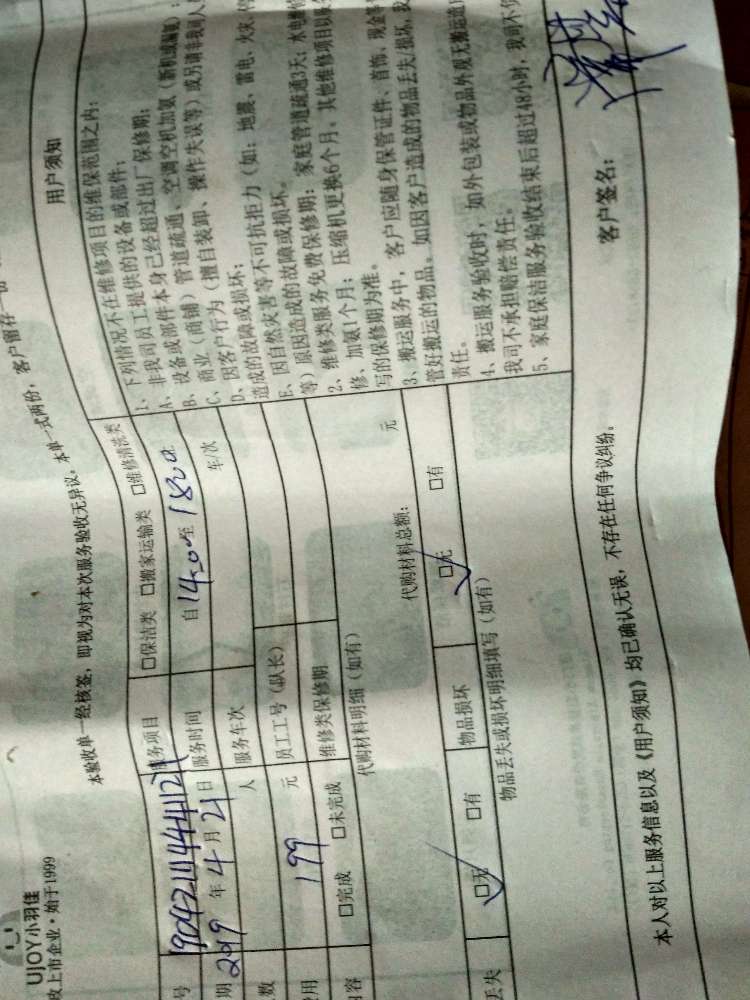 UJOY小羽佳
政上市企业·始于1999
本验收单一经核签，即视为对本次服务验收无异议。本单一式两份，客户留存一
号 19042144441121 服务项目 □保洁类 □搬家运输类 □维修清洗类
期 2019年4月21日 服务时间 自1400至1800
数 人 服务车次 车/次
费用 199元 员工工号（队长）
内容 □完成 □未完成 维修类保修期
代购材料明细（如有） 代购材料总额： 元
丢失 □无 □有 物品损坏 □无 □有
物品丢失或损坏明细填写（如有）
用户须知
1、下列情况不在维修项目的维保范围之内：
A、非我司员工提供的设备或部件；
B、设备或部件本身已经超过出厂保修期；
C、商业（商铺）管道疏通、空调空机加氨（新机或漏氨）；
D、因客户行为（擅自装卸、操作失误等）或另请非我司人员
造成的故障或损坏；
E、因自然灾害等不可抗拒力（如：地震、雷电、火灾、
等）原因造成的故障或损坏。
2、维修类服务免费保修期：家庭管道疏通3天；水电维
修、加氨1个月；压缩机更换6个月，其他维修项目以
写的保修期为准。
3、搬运服务中，客户应随身保管证件、首饰、现金等
管好搬运的物品。如因客户造成的物品丢失/损坏，我
责任。
4、搬运服务验收时，如外包装或物品外观无搬运
我司不承担赔偿责任。
5、家庭保洁服务验收结束后超过48小时，我司不
本人对以上服务信息以及《用户须知》均已确认无误，不存在任何争议纠纷。
客户签名：